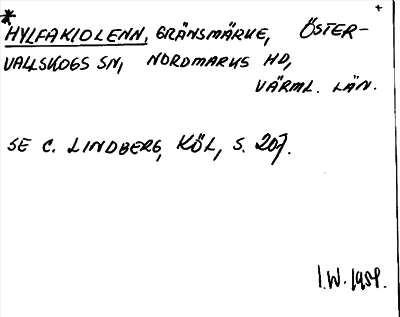 *
HYLFAKIOLENN, GRÄNSMÄRKE, ÖSTER-
VALLSKOGS SN, NORDMARKS HD,
VÄRML. LÄN.
SE C. LINDBERG, KÖL, S. 207.
I.W. 1959.